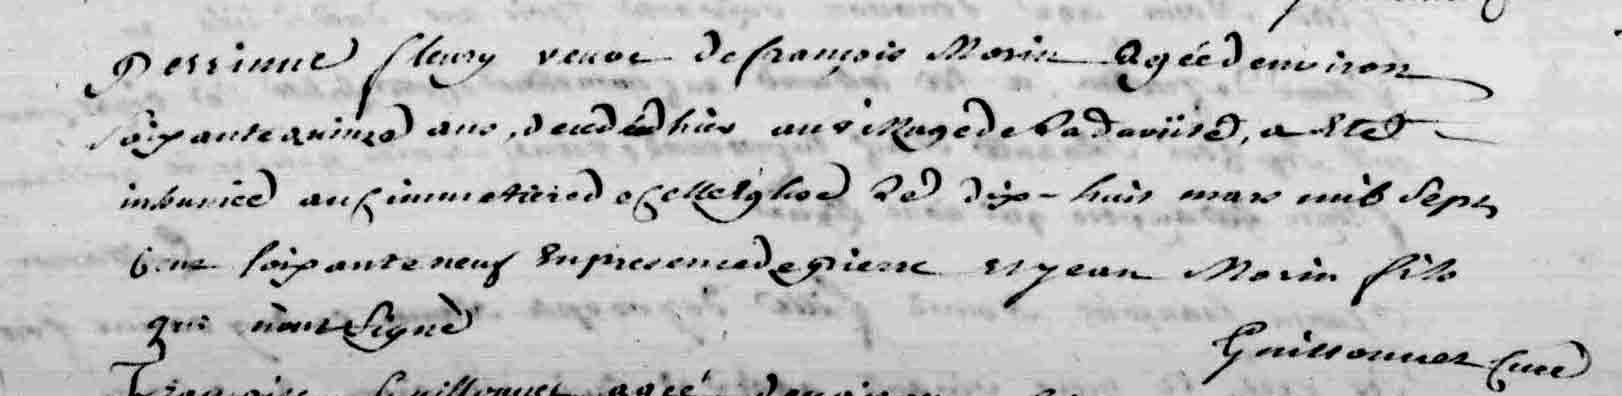 Perrinne fleury veuve de françois Morin Agée d'environ
soixante quinze ans, decedée d'hier au village de la daviere, a Eté
inhumée au cimmetiere de cette Eglise le dix-huit mars mil sept
Cent soixante neuf En presence de pierre et jean Morin fils
qui n'ont signé
Guittonnet Curé
françoise Guittonnet agée d'environ